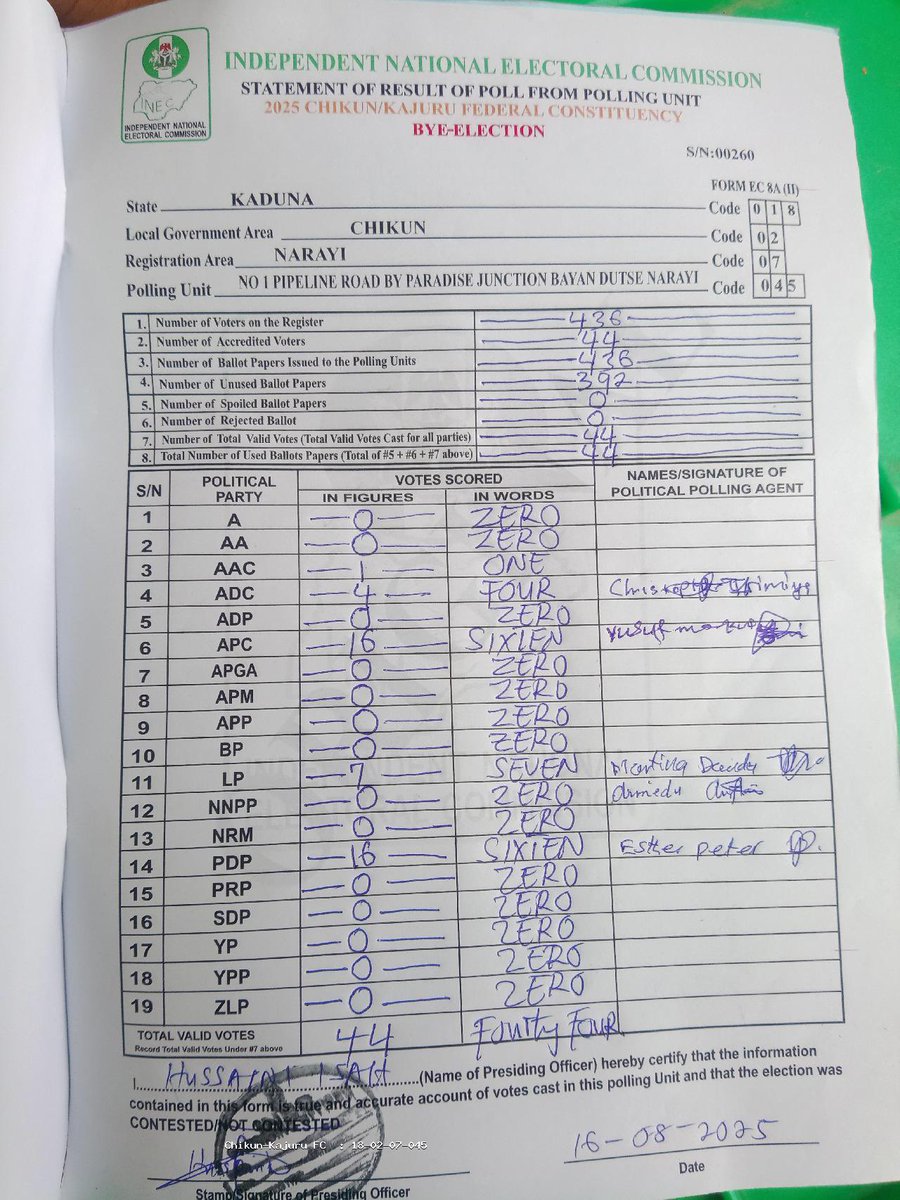 INEC
INDEPENDENT NATIONAL
ELECTORAL COMMISSION
INDEPENDENT NATIONAL ELECTORAL COMMISSION
STATEMENT OF RESULT OF POLL FROM POLLING UNIT
2025 CHIKUN/KAJURU FEDERAL CONSTITUENCY
BYE-ELECTION
S/N:00260
FORM EC 8A (II)
State KADUNA Code 018
Local Government Area CHIKUN Code 02
Registration Area NARAYI Code 07
Polling Unit NO 1 PIPELINE ROAD BY PARADISE JUNCTION BAYAN DUTSE NARAYI Code 045
1. Number of Voters on the Register 436
2. Number of Accredited Voters 44
3. Number of Ballot Papers Issued to the Polling Units 436
4. Number of Unused Ballot Papers 392
5. Number of Spoiled Ballot Papers 0
6. Number of Rejected Ballot 0
7. Number of Total Valid Votes (Total Valid Votes Cast for all parties) 44
8. Total Number of Used Ballots Papers (Total of #5 + #6 + #7 above) 44
S/N POLITICAL PARTY VOTES SCORED NAMES/SIGNATURE OF POLITICAL POLLING AGENT
IN FIGURES IN WORDS
1 A 0 ZERO
2 AA 0 ZERO
3 AAC 1 ONE
4 ADC 4 FOUR
5 ADP 0 ZERO
6 APC 16 SIXIEN Yusuf
7 APGA 0 ZERO
8 APM 0 ZERO
9 APP 0 ZERO
10 BP 0 ZERO
11 LP 7 SEVEN
12 NNPP 0 ZERO
13 NRM 0 ZERO
14 PDP 16 SIXIEN Esther peter
15 PRP 0 ZERO
16 SDP 0 ZERO
17 YP 0 ZERO
18 YPP 0 ZERO
19 ZLP 0 ZERO
TOTAL VALID VOTES 44 Fourty Four
Record Total Valid Votes Under #7 above
I HUSSAINI ISAH (Name of Presiding Officer) hereby certify that the information
contained in this form is true and accurate account of votes cast in this polling Unit and that the election was
CONTESTED/NOT CONTESTED
Chikun-Kajuru FC : 18-02-07-045
16-08-2025
Date
Stamp/Signature of Presiding Officer